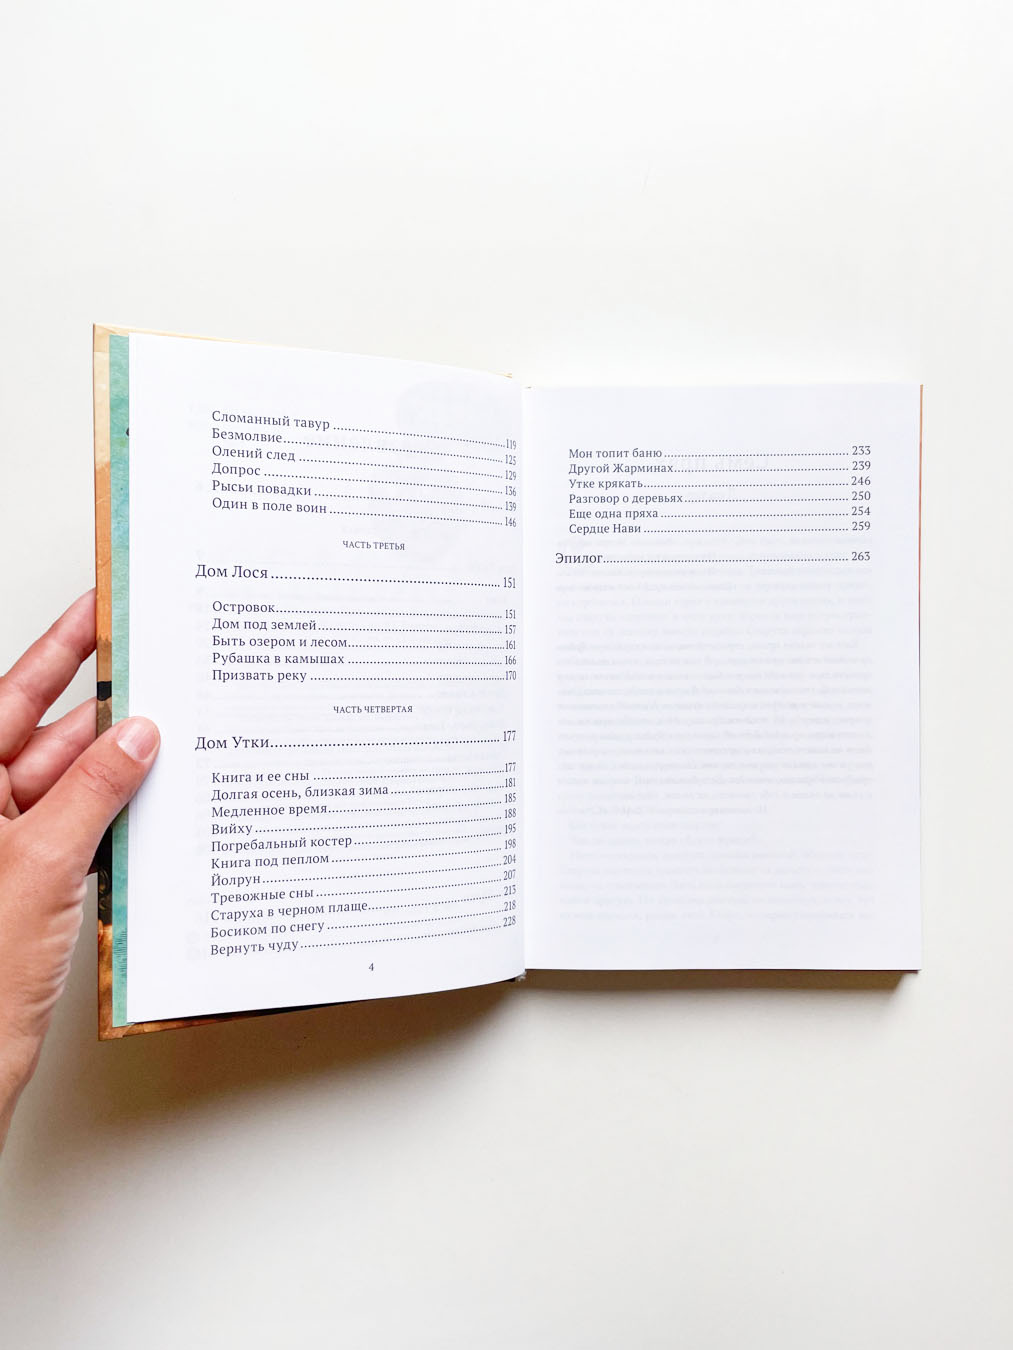 Сломанный тавур ........ 119
Безмолвие ........ 125
Олений след ........ 129
Допрос ........ 136
Рысьи повадки ........ 139
Один в поле воин ........ 146
ЧАСТЬ ТРЕТЬЯ
Дом Лося ........ 151
Островок ........ 151
Дом под землей ........ 157
Быть озером и лесом ........ 161
Рубашка в камышах ........ 166
Призвать реку ........ 170
ЧАСТЬ ЧЕТВЕРТАЯ
Дом Утки ........ 177
Книга и ее сны ........ 177
Долгая осень, близкая зима ........ 181
Медленное время ........ 185
Вийху ........ 188
Погребальный костер ........ 195
Книга под пеплом ........ 198
Йолрун ........ 204
Тревожные сны ........ 207
Старуха в черном плаще ........ 213
Босиком по снегу ........ 218
Вернуть чуду ........ 228
4
Мон топит баню ........ 233
Другой Жарминах ........ 239
Утке крякать ........ 246
Разговор о деревьях ........ 250
Еще одна пряха ........ 254
Сердце Нави ........ 259
Эпилог ........ 263